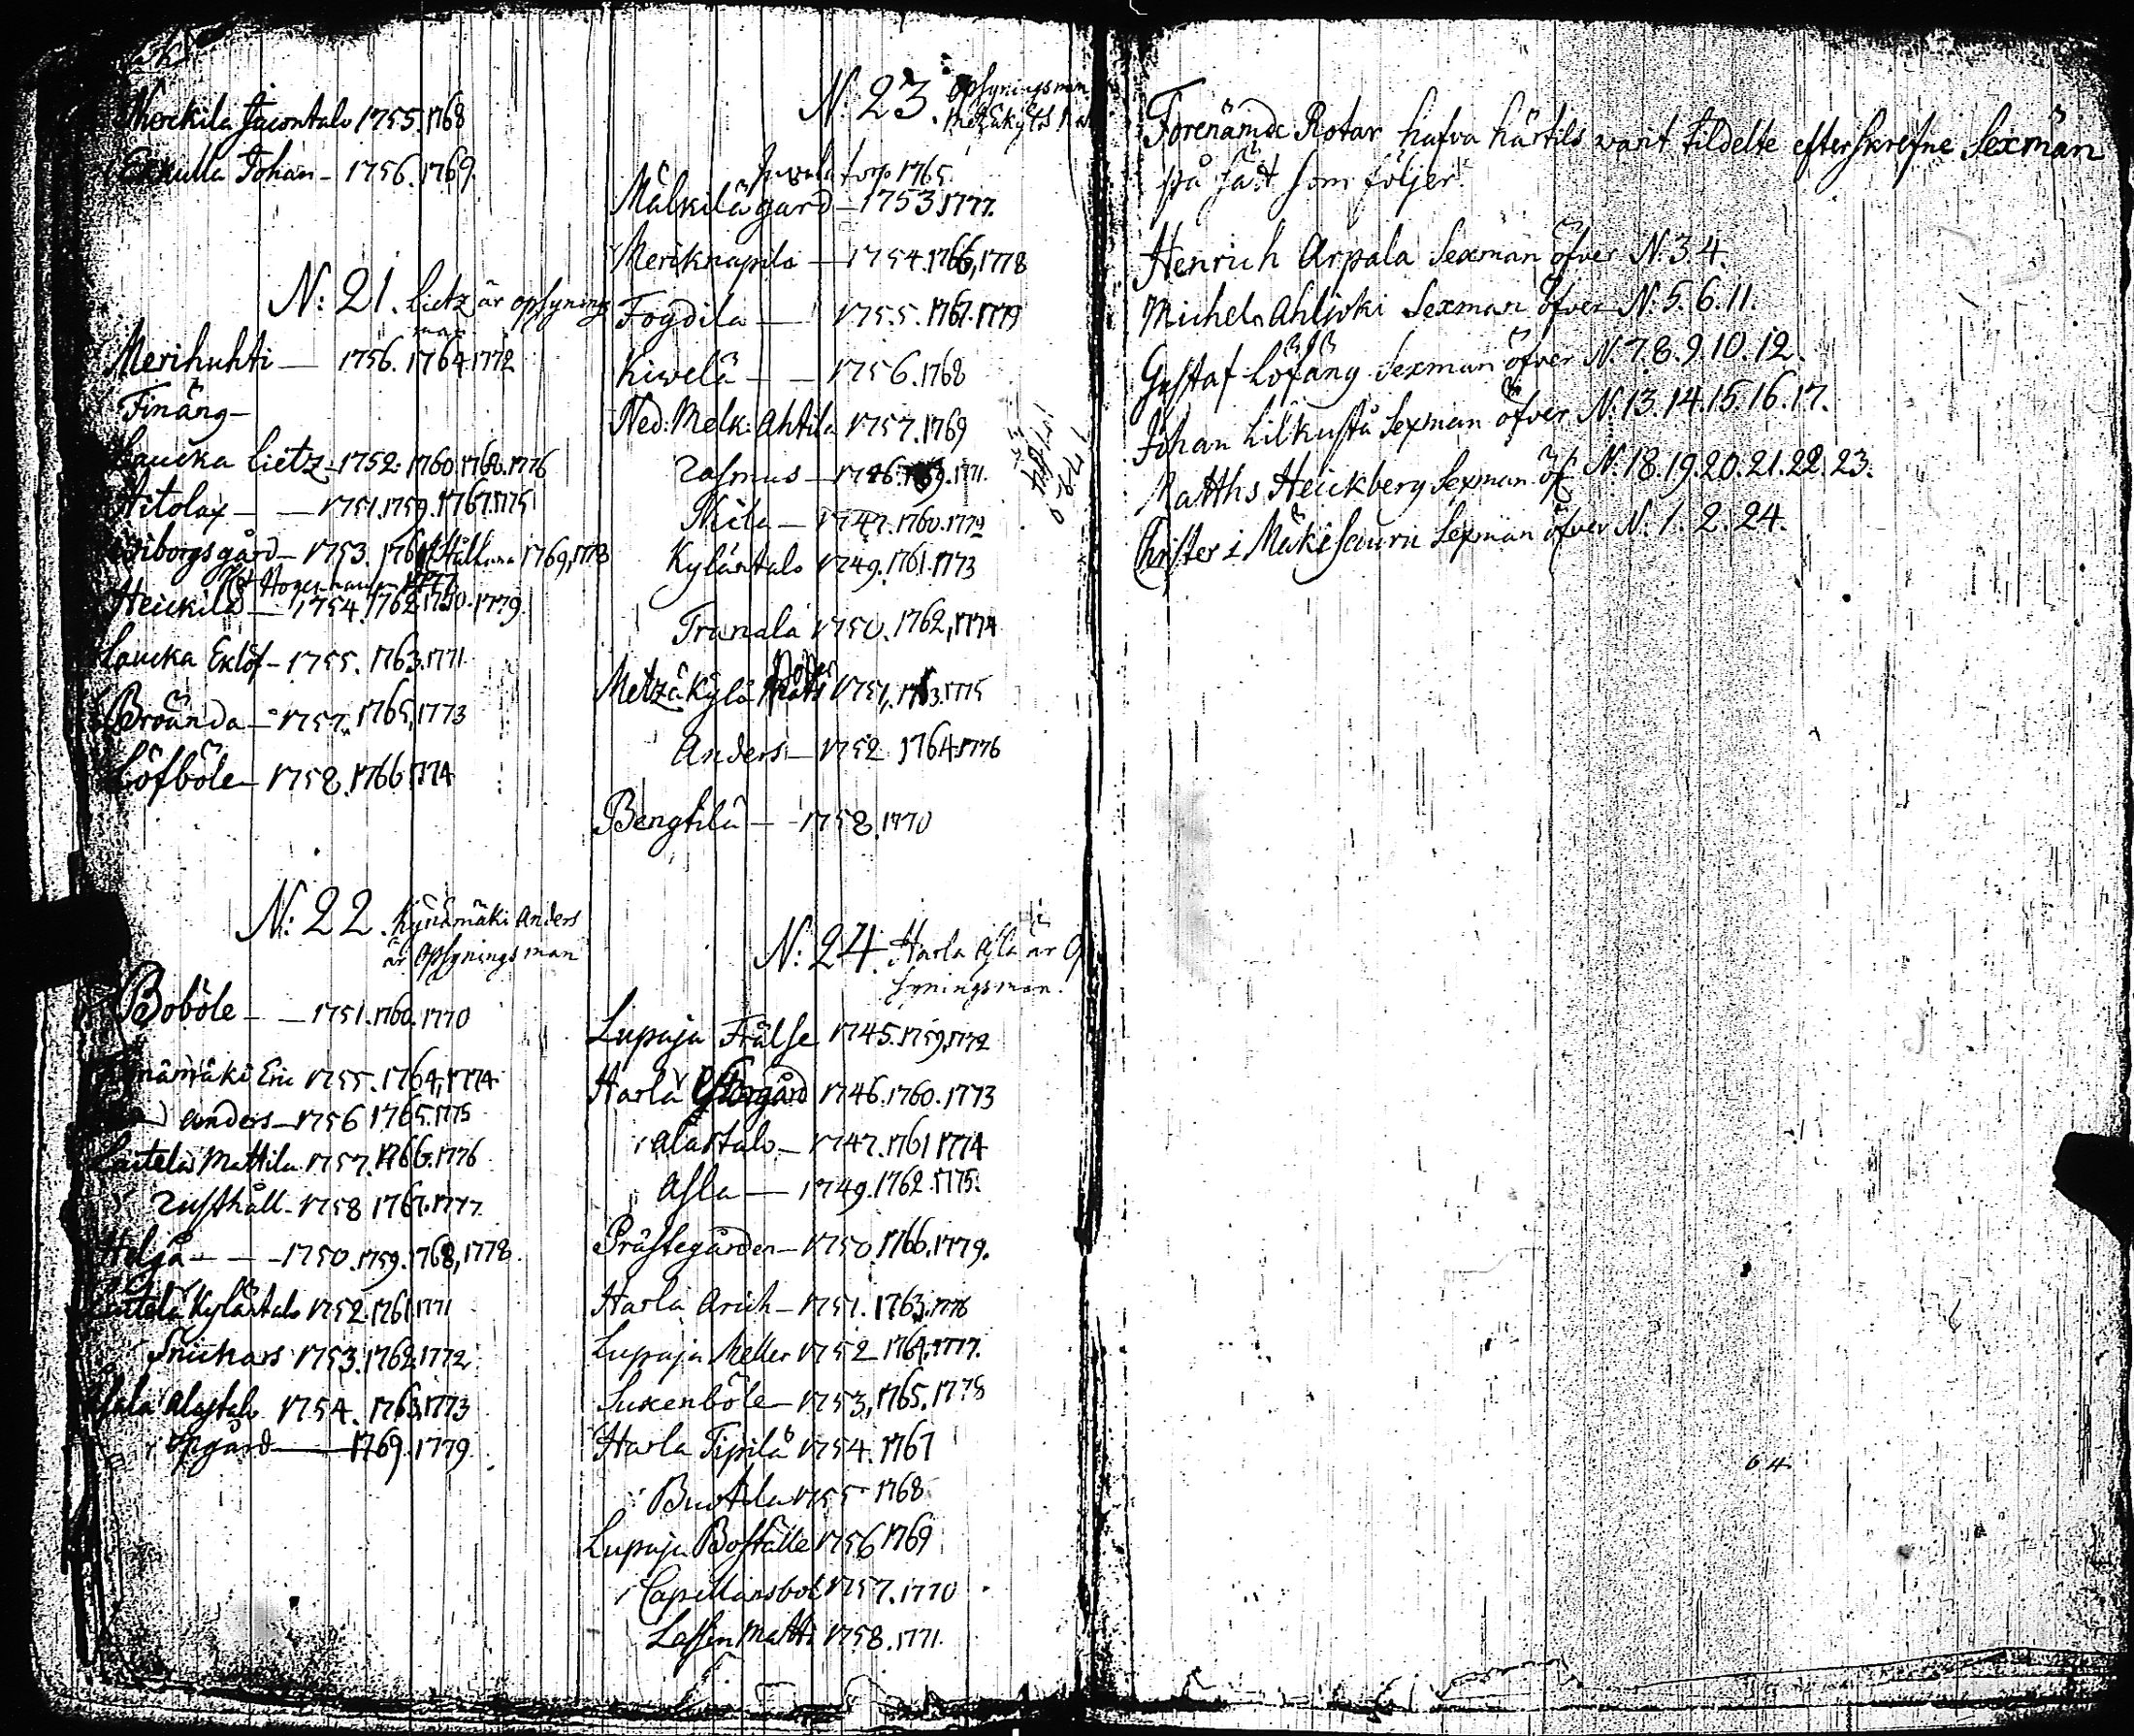 Merkila Juontalo 1755. 1768
Erkulla Johan - 1756. 1769.
N: 21. Lietz är opsynings
man
Merihuhti — 1756. 1764. 1772
Finäng —
Laucka Lietz - 1752. 1760. 1768. 1776
Aitolax — — 1751. 1759. 1767. 1775
Wiborgs gård — 1753. 1769, 1778
Heickilä — 1754. 1762. 1779.
Laucka Eklöf - 1755. 1763. 1771.
Bröända — 1757. 1765, 1773
Löfböle — 1758. 1766. 1774
N: 22. Kynämäki Anders
är opsynings man
Boböle — — 1751. 1760. 1770
Kynämäki Eric 1755. 1764, 1774.
Anders — 1756 1765. 1775
Laitela Mattila 1757. 1766. 1776
Rusthåll - 1758 1767. 1777.
Heljä — — 1750. 1759. 1768, 1778.
Laitela Kyläntalo 1752. 1761. 1771
Snickars 1753. 1762. 1772.
Alastalo 1754. 1763. 1773
opgård — 1769. 1779.
N: 23. opsyningsman
Metzäkylä
torp 1765.
Mälkilä gård — 1753. 1777.
Meriknapila — 1754. 1766, 1778
Fogdila — 1755. 1767. 1779
Kiwelä — — 1756. 1768
Ned: Melk: Ahtila 1757. 1769
Rasmus — 1746. 1771.
Nila — 1747. 1760. 1772
Kyläntalo 1749. 1761. 1773
Tranala 1750. 1762, 1774
Metzäkylä Matts 1751, 1763. 1775
Anders — 1752 1764. 1776
Bengtilä — 1758. 1770
1780
N: 24. Harla Asla är Op
syningsman.
Lupaja Frälse 1745. 1759. 1772
Harla Storgård 1746. 1760. 1773
Alastalo — 1747. 1761 1774
Asla — 1749. 1762. 1775.
Prästegården — 1750. 1766. 1779.
Harla Arich — 1751. 1763. 1776
Lupaja Meller 1752 1764. 1777.
Suxenböle — 1753, 1765. 1778
Harla Pipilä 1754. 1767
Buskila 1755 1768
Lupaja Boställe 1756 1769
Capellansbol 1757. 1770
Lassen Matts 1758. 1771.
Förenämde Rotar hafva härtils warit tildelte efterskrefne Sexmän
på sätt som följer.
Henrich Arpala Sexman öfver N. 3. 4.
Michel Ahljoki Sexman öfver N. 5. 6. 11.
Gustaf Löfäng Sexman öfver N. 7. 8. 9. 10. 12.
Johan Lilkustå Sexman öfver N. 13. 14. 15. 16. 17.
Matths Heickberg Sexman öf N. 18. 19. 20. 21. 22. 23.
Christer i Mäkisauru Sexman öfver N. 1. 2. 24.
64